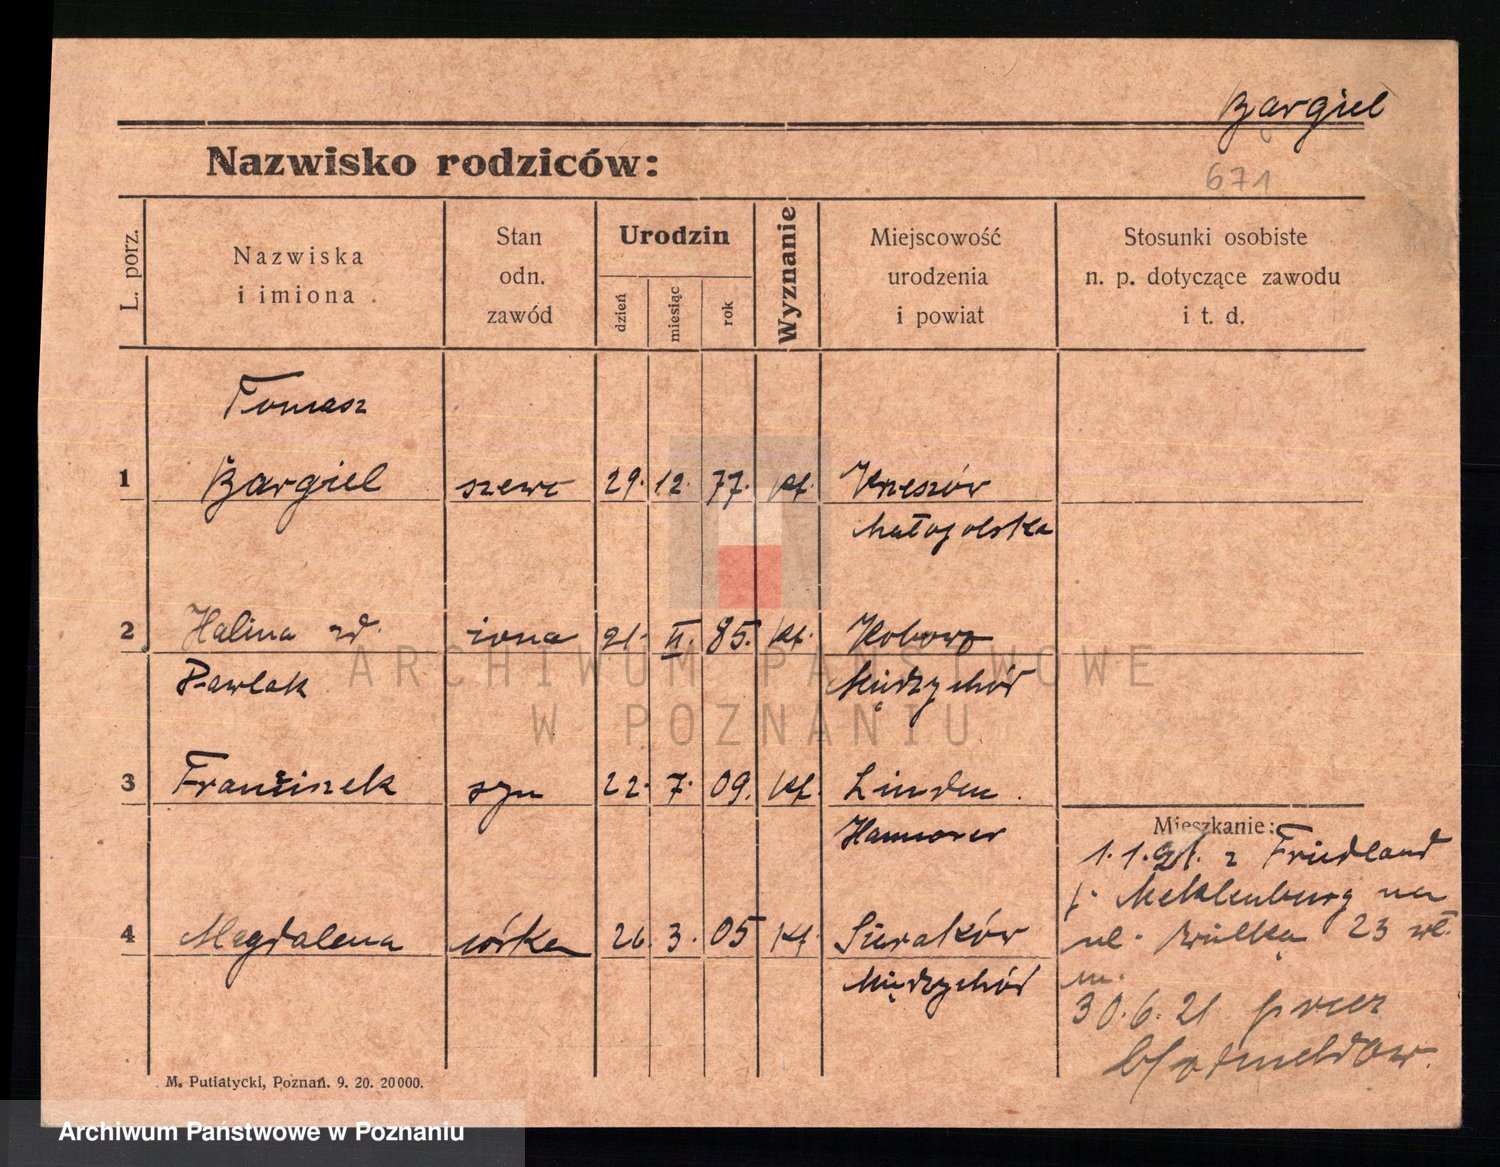 Bargiel
Nazwisko rodziców:
671
L. porz.
Nazwiska
i imiona
Stan
odn.
zawód
Urodzin
dzień
miesiąc
rok
Wyznanie
Miejscowość
urodzenia
i powiat
Stosunki osobiste
n. p. dotyczące zawodu
i t. d.
Tomasz
1 Bargiel szewc 29. 12. 77. kt.
Małopolska
2 Halina zd. żona 21. II. 85. kt.
Pawlak Międzychód
3 Franciszek syn 22. 7. 09. kt. Linden
Hannover
Mieszkanie:
1. 1. 21. z Friedland
i. Meklenburg na
4 Magdalena córka 26. 3. 05 kt. Sieraków
ul. Wielka 23 wł.
m.
Międzychód
30. 6. 21 przez
odmeldow.
M. Putiatycki, Poznań. 9. 20. 20000.
ARCHIWUM PAŃSTWOWE
W POZNANIU
Archiwum Państwowe w Poznaniu